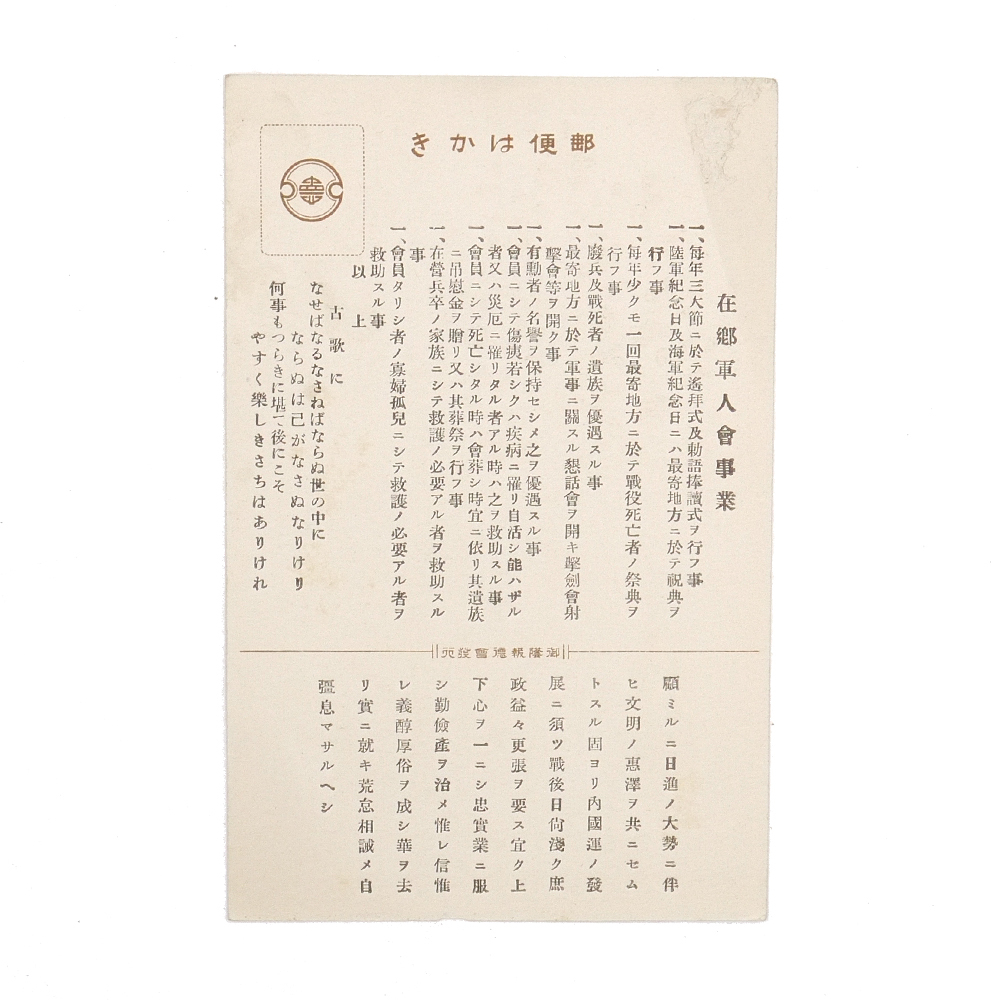 郵便はかき
在鄕軍人會事業
一、每年三大節ニ於テ遙拜式及勅語捧讀式ヲ行フ事
一、陸軍紀念日及海軍紀念日ニハ最寄地方ニ於テ祝典ヲ
行フ事
一、每年少クモ一回最寄地方ニ於テ戰役死亡者ノ祭典ヲ
行フ事
一、廢兵及戰死者ノ遺族ヲ優遇スル事
一、最寄地方ニ於テ軍事ニ關スル懇話會ヲ開キ擊劍會射
擊會等ヲ開ク事
一、有勳者ノ名譽ヲ保持セシメ之ヲ優遇スル事
一、會員ニシテ傷痍若シクハ疾病ニ罹リ自活シ能ハザル
者又ハ災厄ニ罹リタル者アル時ハ之ヲ救助スル事
一、會員ニシテ死亡シタル時ハ會葬シ時宜ニ依リ其遺族
ニ吊慰金ヲ贈リ又ハ其葬祭ヲ行フ事
一、在營兵卒ノ家族ニシテ救護ノ必要アル者ヲ救助スル
事
一、會員タリシ者ノ寡婦孤兒ニシテ救護ノ必要アル者ヲ
救助スル事
以上
古歌に
なせばなるなさねばならぬ世の中に
ならぬは己がなさぬなりけり
何事もつらきに堪て後にこそ
やすく樂しきさちはありけれ
報德會發行
顧ミルニ日進ノ大勢ニ伴
ヒ文明ノ惠澤ヲ共ニセム
トスル固ヨリ內國運ノ發
展ニ須ツ戰後日尙淺ク庶
政益々更張ヲ要ス宜ク上
下心ヲ一ニシ忠實業ニ服
シ勤儉產ヲ治メ惟レ信惟
レ義醇厚俗ヲ成シ華ヲ去
リ實ニ就キ荒怠相誡メ自
彊息マサルヘシ